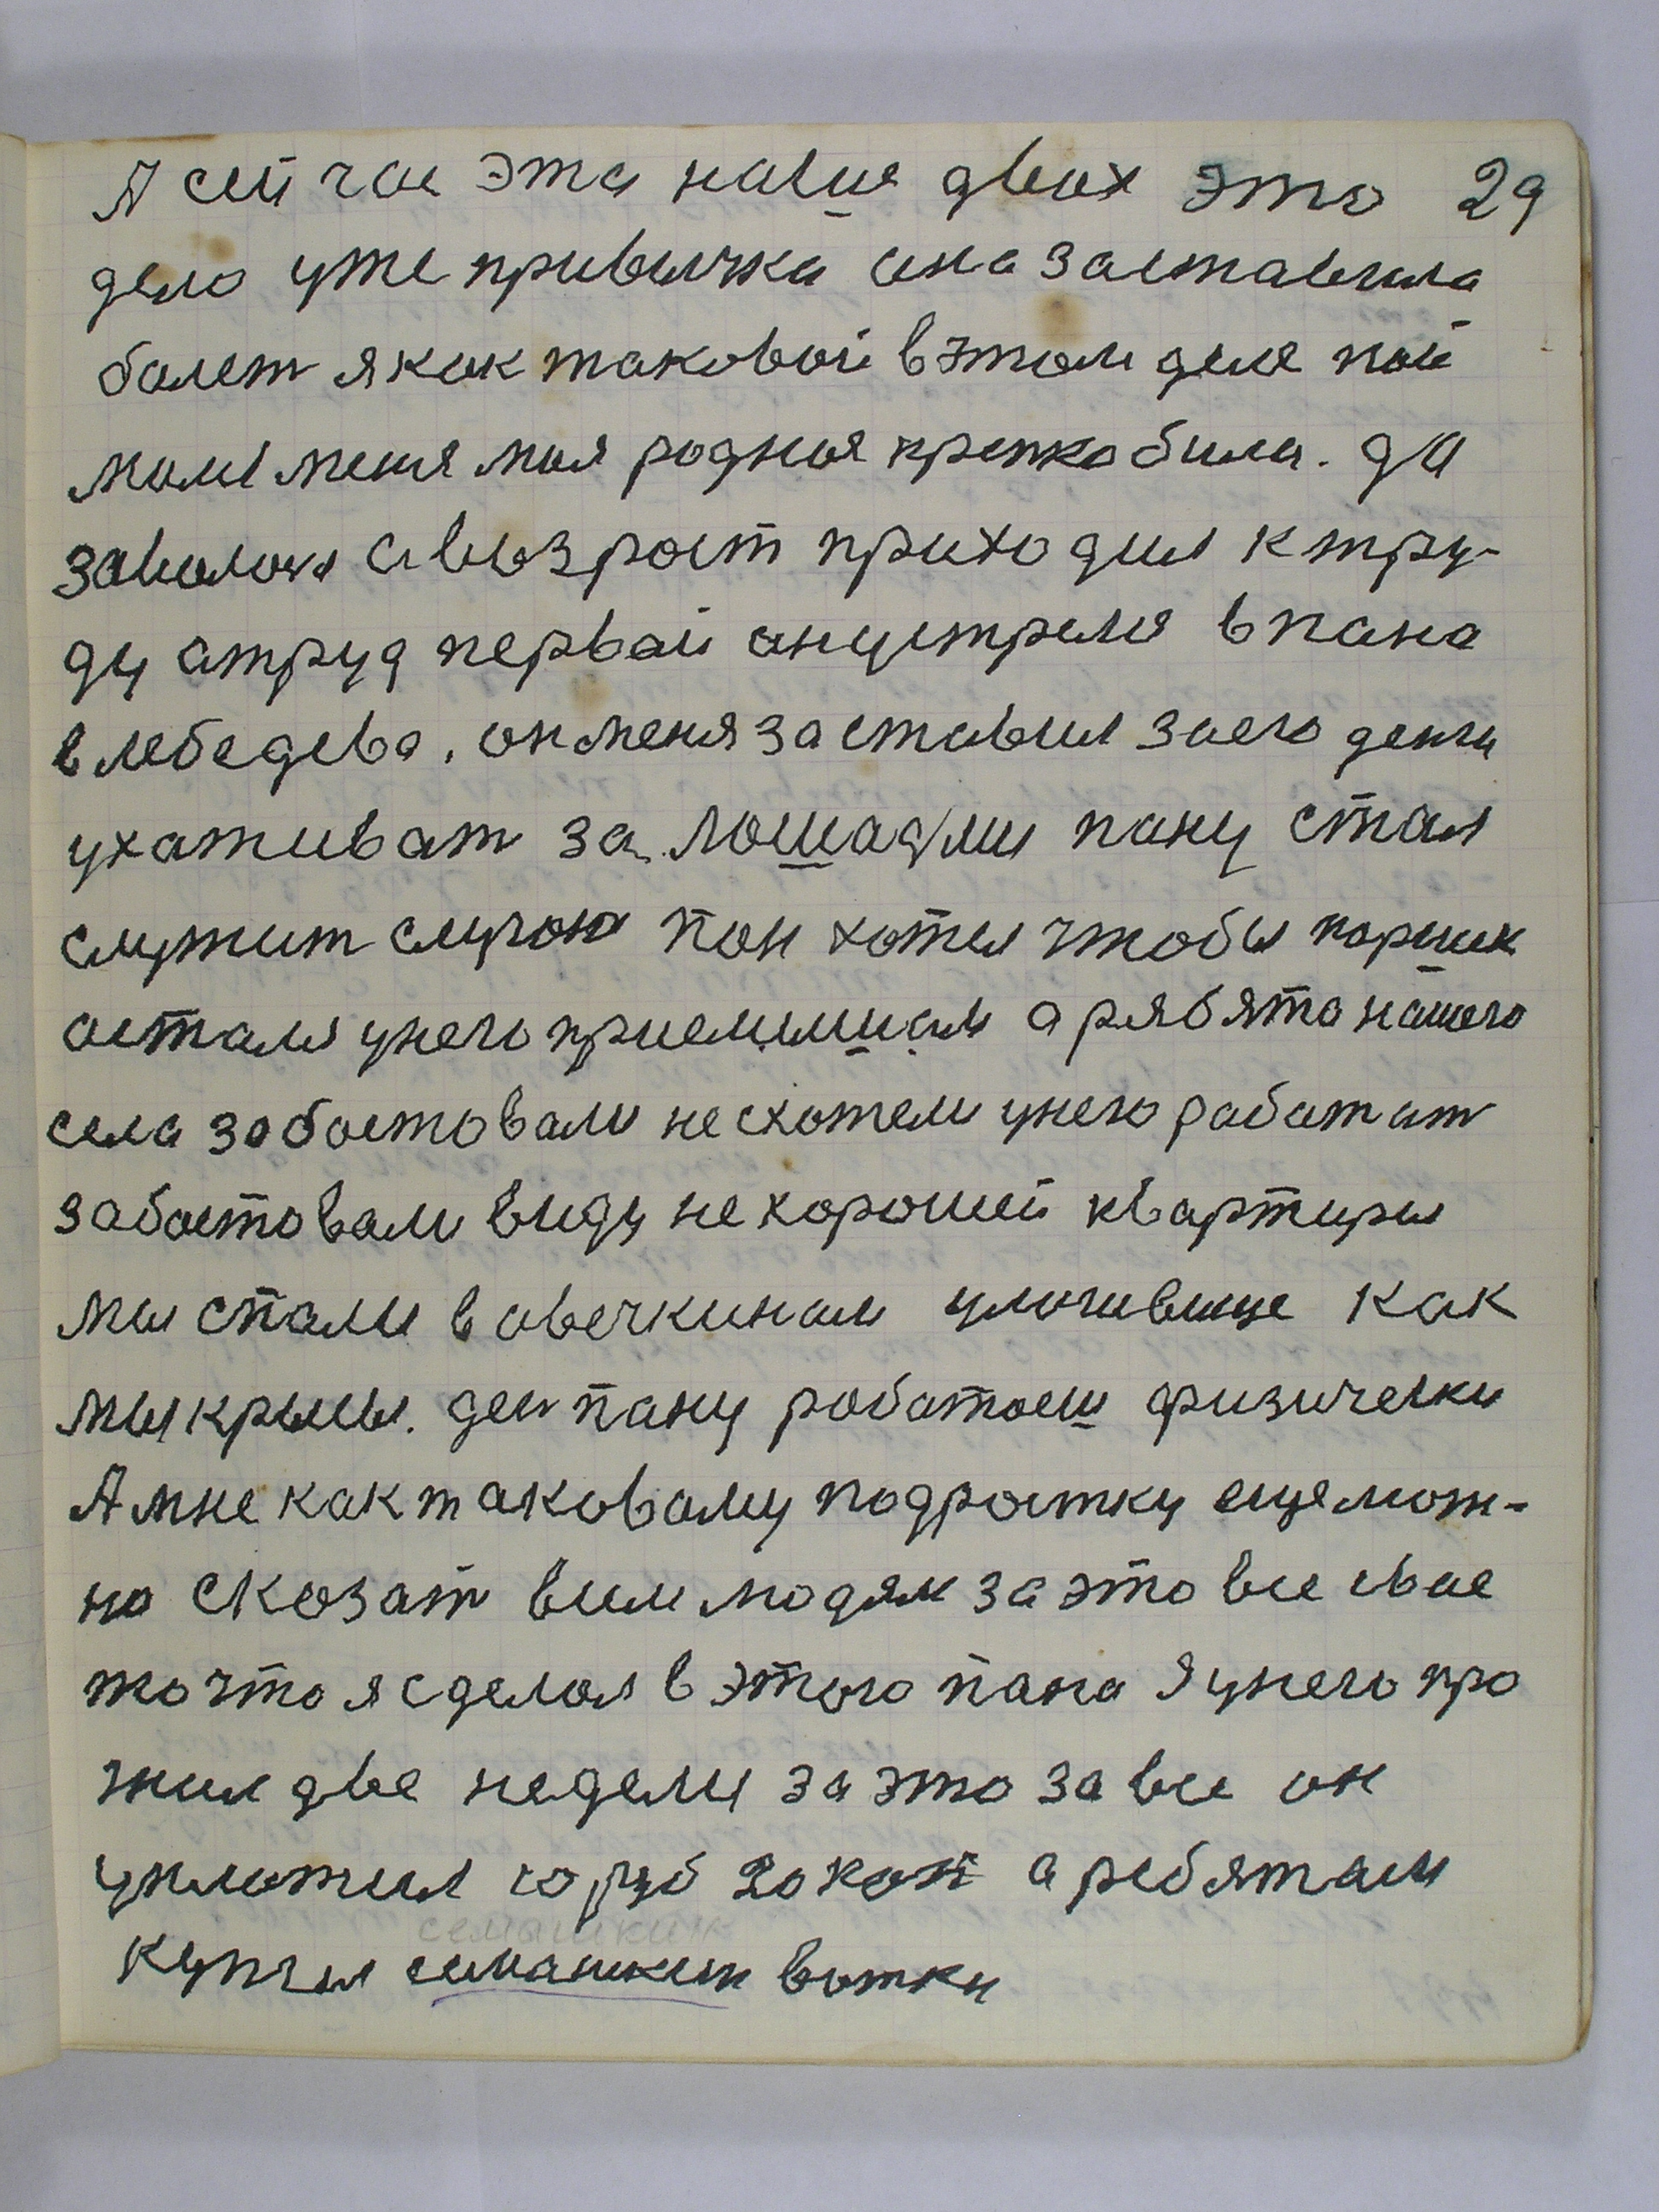 А сей час эта наша двох это 29
дело уже привычка она заставила
болет я как таковой в этом деле пой
мал меня моя родная крепко била. да
заволоч а возраст приходил к тру-
ду а труд первай ануетреля в пана
в лебедева. он меня заставил за его денги
ухаживат за лошадми пану стал
служит слугою пан хотел чтобы парниш
астался у него приемышам а рябята нашего
села забастовали не схотели у него работат
забастовали виду не хорошей квартиры
мы спали в овечкинам улогивище как
мы крысы. ден пану работаеш физически
А мне как таковому подростку еще мож-
но сказат всим людям за это все свое
то что я сделал в этого пана я у него про
жил две недели за это за все он
уплотил 10 руб 20 коп а ребятам
семашкин
купил симашкин вотки